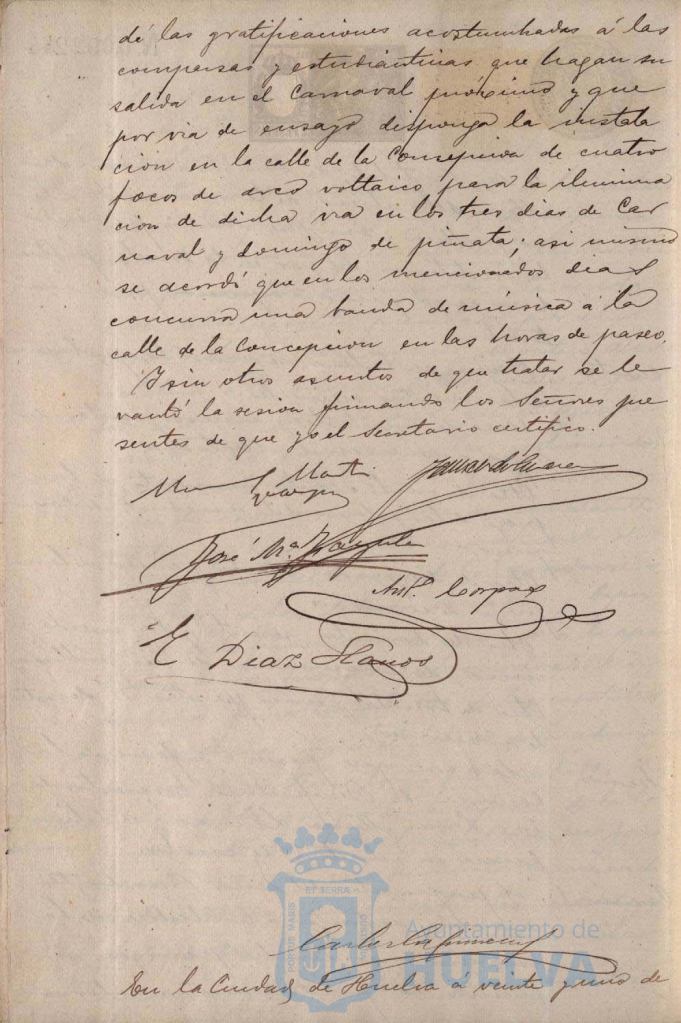 dé las gratificaciones acostumbradas á las
comparsas y estudiantinas que hagan su
salida en el Carnaval próximo y que
por via de ensayo disponga la instala
ción en la calle de la Concepción de cuatro
focos de arco voltaico para la ilumina
ción de dicha via en los tres dias de Car
naval y domingo de piñata; asi mismo
se acordó que en los mencionados dias
concurra una banda de música á la
calle de la Concepcion en las horas de paseo.
Y sin otros asuntos de que tratar se le
vantó la sesión firmando los Señores pre
sentes de que yo el Secretario certifico.
José Mª
Antº
E Diaz Llanos
ET SERRA
PORTUS MARIS
CUSTODIO
Ayuntamiento de
HUELVA
En la Ciudad de Huelva á veinte y uno de